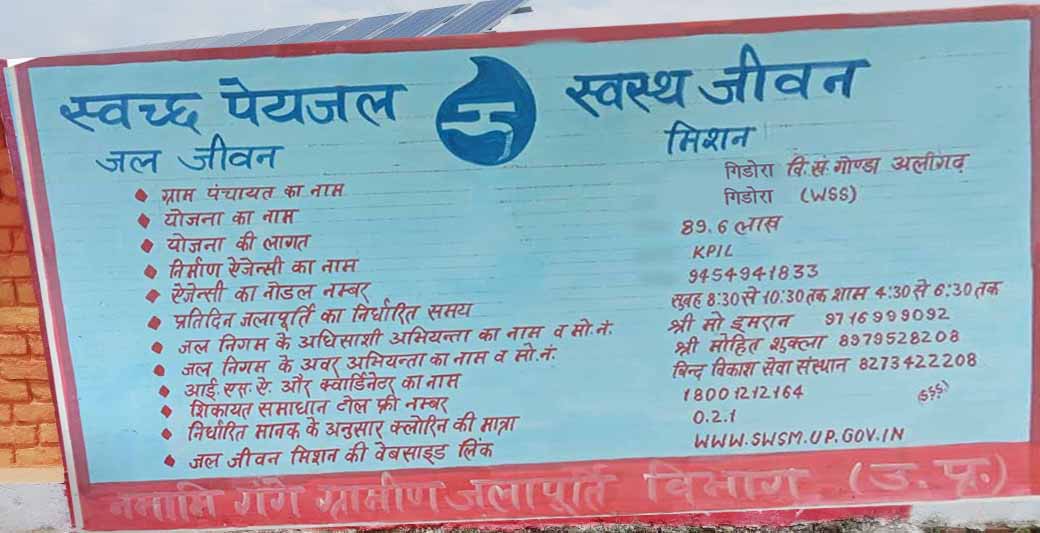 स्वच्छ पेयजल स्वस्थ जीवन
जल जीवन मिशन
ग्राम पंचायत का नाम गिडोरा वि.खं. गोण्डा अलीगढ़
योजना का नाम गिडोरा (WSS)
योजना की लागत 89.6 लाख
निर्माण ऐजेन्सी का नाम KPIL
ऐजेन्सी का नोडल नम्बर 9454941833
प्रतिदिन जलापूर्ति का निर्धारित समय सुबह 8:30 से 10:30 तक शाम 4:30 से 6:30 तक
जल निगम के अधिसाशी अभियन्ता का नाम व मो.नं. श्री मो इमरान 9716999092
जल निगम के अवर अभियन्ता का नाम व मो.नं. श्री मोहित शुक्ला 8979528208
आई.एस.ऐ. और क्वार्डिनेटर का नाम बिन्द्र विकाश सेवा संस्थान 8273422208
शिकायत समाधान टोल फ्री नम्बर 18001212164
निर्धारित मानक के अनुसार क्लोरिन की मात्रा 0.2.1
जल जीवन मिशन की वेबसाइड लिंक WWW.SWSM.UP.GOV.IN
नमामि गंगे ग्रामीण जलापूर्ति विभाग (उ.प्र.)